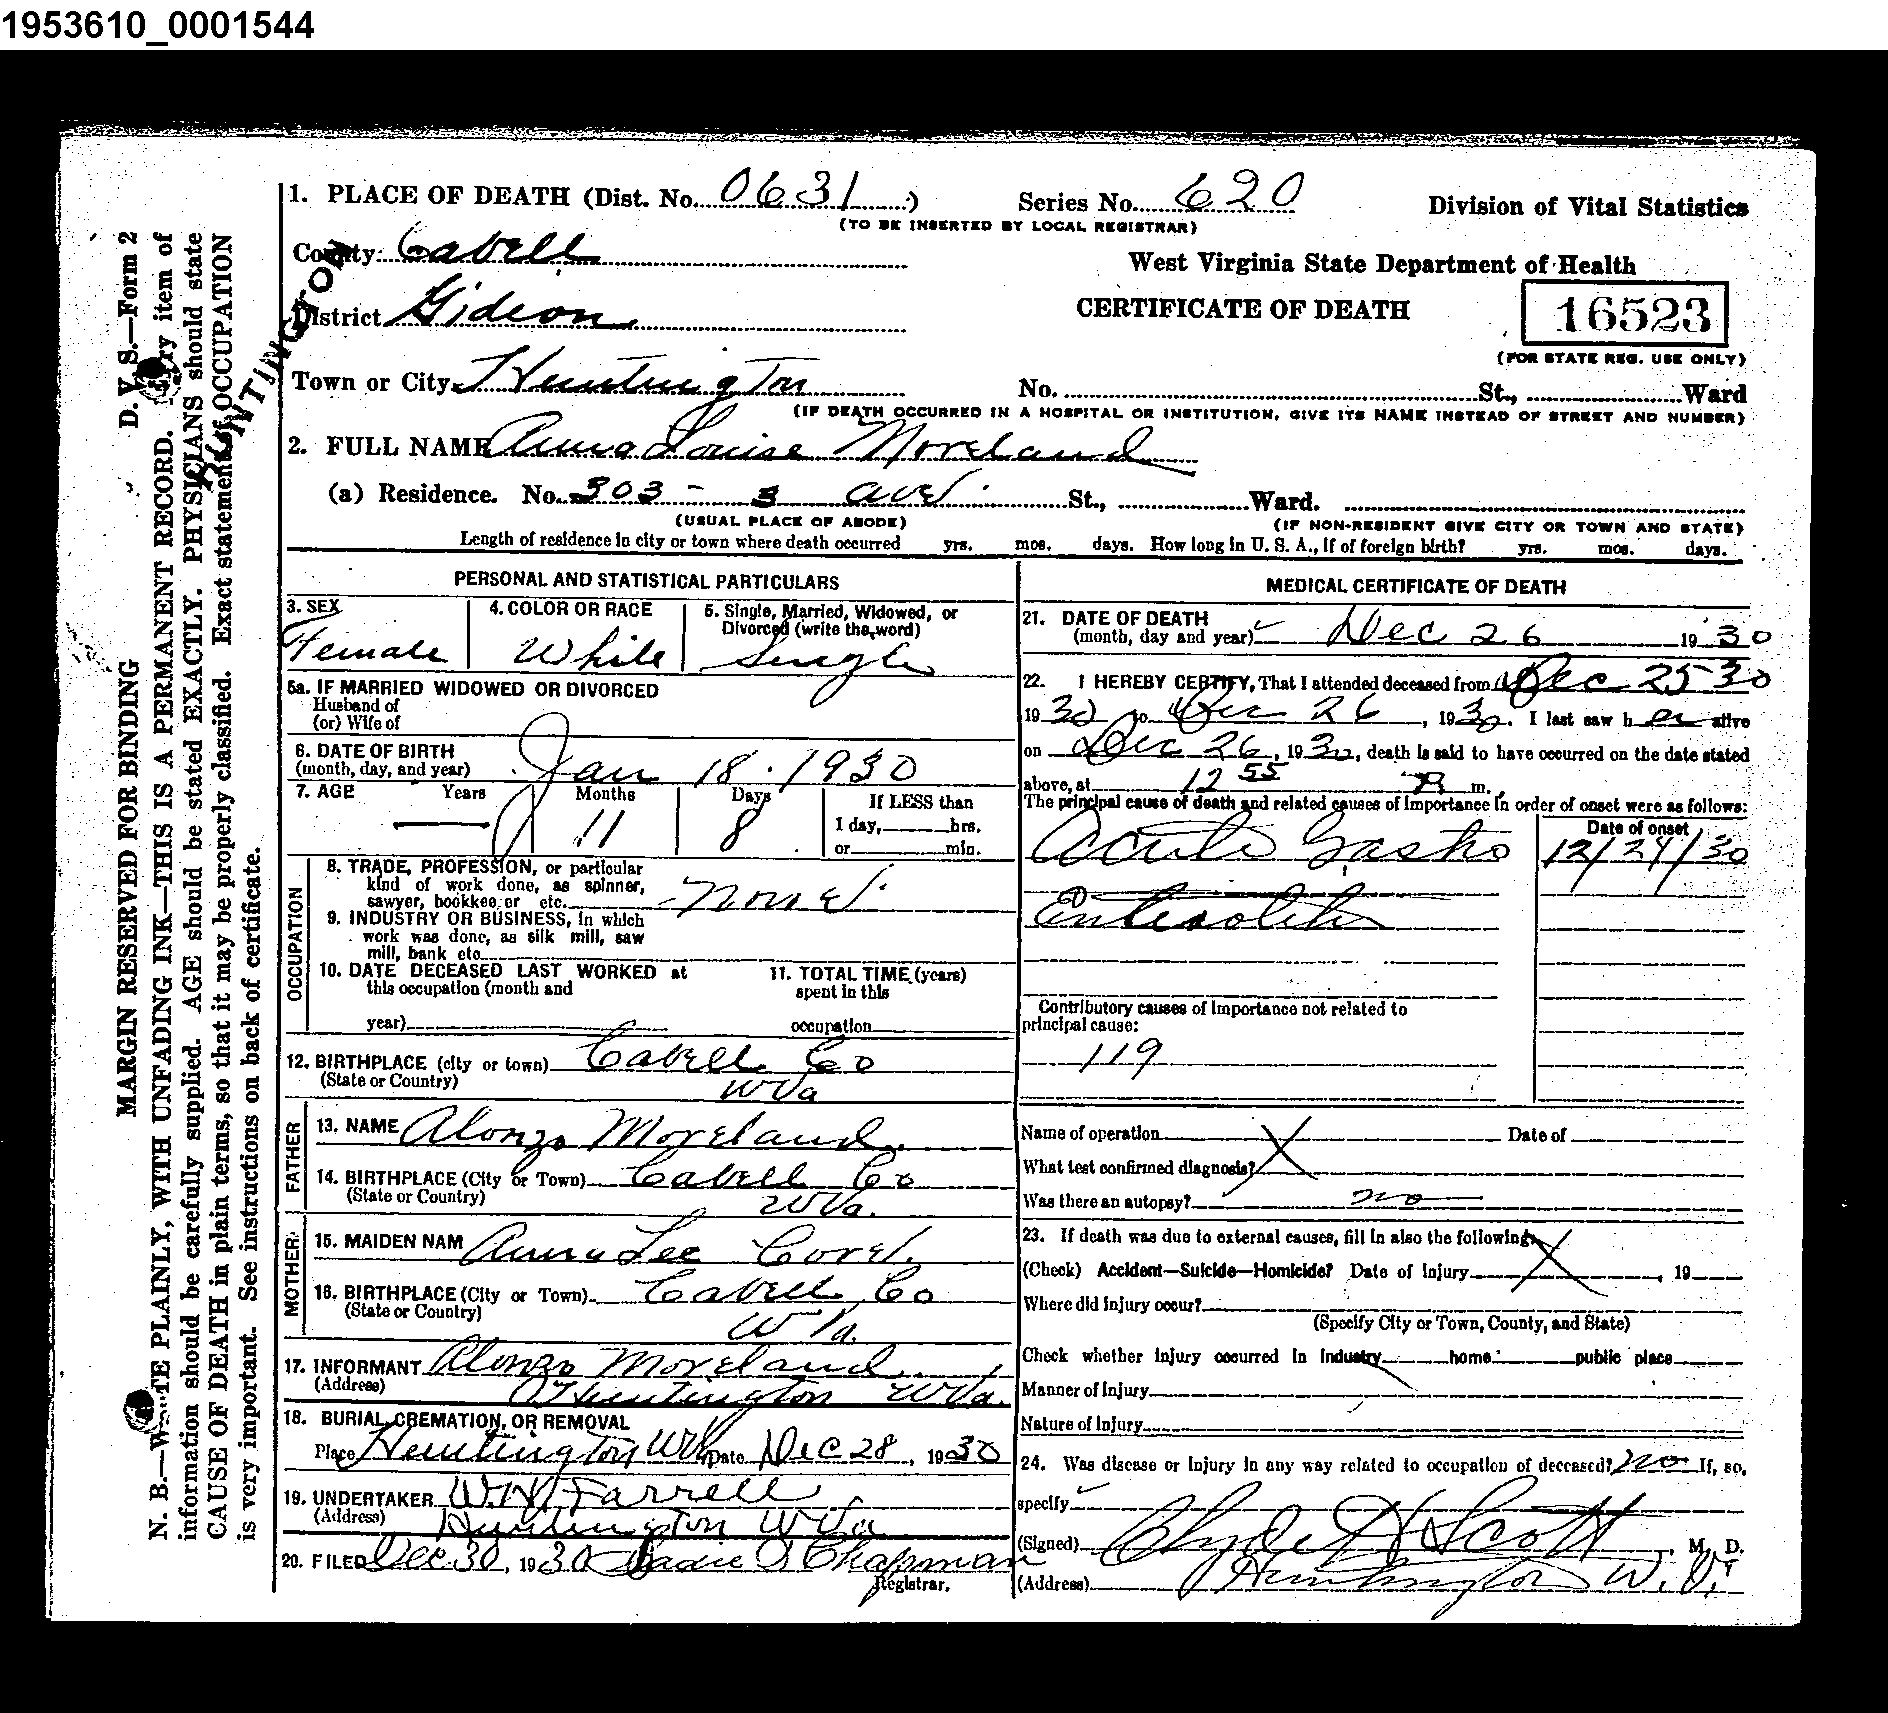 1953610_0001544
1. PLACE OF DEATH (Dist. No. 0631 ) Series No. 620 Division of Vital Statistics
(TO BE INSERTED BY LOCAL REGISTRAR)
County Cabell
West Virginia State Department of Health
District Gideon
CERTIFICATE OF DEATH 16523
(FOR STATE REG. USE ONLY)
HUNTINGTON
Town or City Huntington No. St., Ward
(IF DEATH OCCURRED IN A HOSPITAL OR INSTITUTION, GIVE ITS NAME INSTEAD OF STREET AND NUMBER)
2. FULL NAME Anna Louise Moreland
(a) Residence. No. 303 - 3 ave. St., Ward.
(USUAL PLACE OF ABODE) (IF NON-RESIDENT GIVE CITY OR TOWN AND STATE)
Length of residence in city or town where death occurred yrs. mos. days. How long in U. S. A., if of foreign birth? yrs. mos. days.
PERSONAL AND STATISTICAL PARTICULARS
3. SEX 4. COLOR OR RACE 5. Single, Married, Widowed, or
Divorced (write the word)
Female White Single
5a. IF MARRIED WIDOWED OR DIVORCED
Husband of
(or) Wife of
6. DATE OF BIRTH
(month, day, and year) Jan 18 1930
7. AGE Years Months Days If LESS than
1 day, hrs.
11 8
or min.
OCCUPATION
8. TRADE, PROFESSION, or particular
kind of work done, as spinner,
sawyer, bookkeeper etc. None
9. INDUSTRY OR BUSINESS, in which
work was done, as silk mill, saw
mill, bank etc.
10. DATE DECEASED LAST WORKED at 11. TOTAL TIME (years)
this occupation (month and spent in this
year) occupation
12. BIRTHPLACE (city or town) Cabell Co
(State or Country) W Va
FATHER
13. NAME Alonzo Moreland
14. BIRTHPLACE (City or Town) Cabell Co
(State or Country) W Va.
MOTHER
15. MAIDEN NAM Anna Lee
16. BIRTHPLACE (City or Town) Cabell Co
(State or Country) W Va.
17. INFORMANT Alonzo Moreland
(Address) Huntington W Va.
18. BURIAL, CREMATION, OR REMOVAL
Place Huntington W Va Date Dec 28, 1930
19. UNDERTAKER W. H. Farrell
(Address) Huntington W Va
20. FILED Dec 30, 1930 Sadie Chapman
Registrar.
MEDICAL CERTIFICATE OF DEATH
21. DATE OF DEATH
(month, day and year) Dec 26 1930
22. I HEREBY CERTIFY, That I attended deceased from Dec 25 30
1930 to Dec 26, 1930. I last saw h er alive
on Dec 26, 1930, death is said to have occurred on the date stated
above, at 12 55 m.
The principal cause of death and related causes of importance in order of onset were as follows:
Date of onset
Acute Gastro 12/24/30
Enterolitis
Contributory causes of importance not related to
principal cause:
119
Name of operation Date of
What test confirmed diagnosis?
Was there an autopsy? no
23. If death was due to external causes, fill in also the following
(Check) Accident—Suicide—Homicide? Date of Injury , 19
Where did injury occur?
(Specify City or Town, County, and State)
Check whether injury occurred in industry home public place
Manner of Injury
Nature of Injury
24. Was disease or injury in any way related to occupation of deceased? no If, so,
specify
(Signed) Clyde H Scott M. D.
(Address) Huntington W. Va
D. V. S.—Form 2
MARGIN RESERVED FOR BINDING
N. B.—WRITE PLAINLY, WITH UNFADING INK—THIS IS A PERMANENT RECORD. Every item of
information should be carefully supplied. AGE should be stated EXACTLY. PHYSICIANS should state
CAUSE OF DEATH in plain terms, so that it may be properly classified. Exact statement of OCCUPATION
is very important. See instructions on back of certificate.